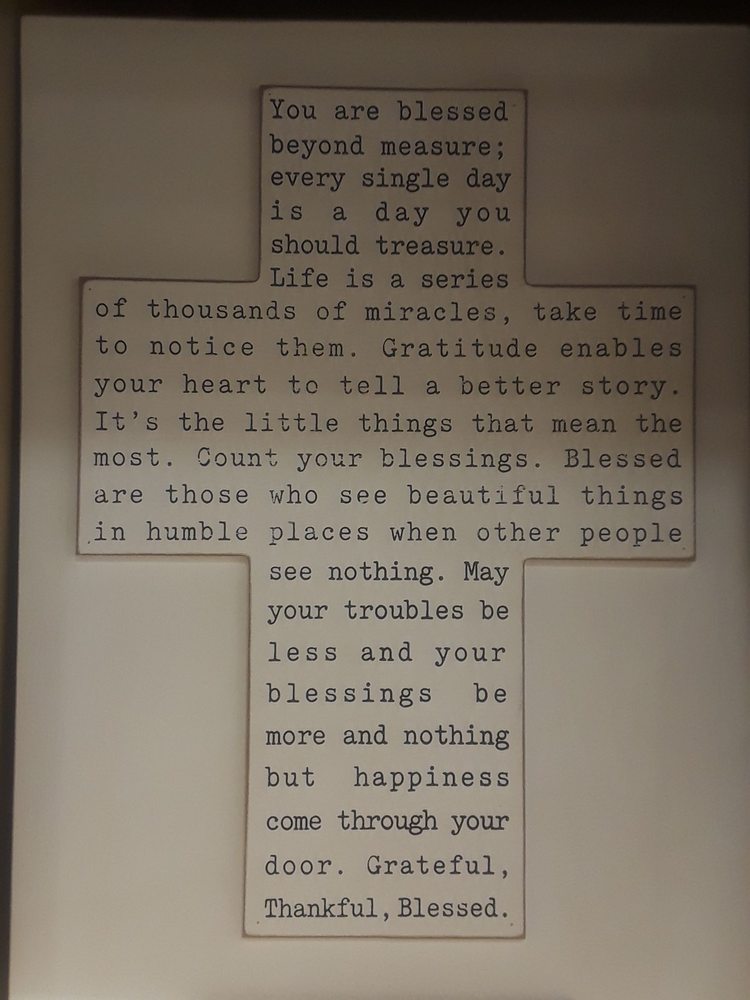 You are blessed
beyond measure;
every single day
is a day you
should treasure.
Life is a series
of thousands of miracles, take time
to notice them. Gratitude enables
your heart to tell a better story.
It's the little things that mean the
most. Count your blessings. Blessed
are those who see beautiful things
in humble places when other people
see nothing. May
your troubles be
less and your
blessings be
more and nothing
but happiness
come through your
door. Grateful,
Thankful, Blessed.